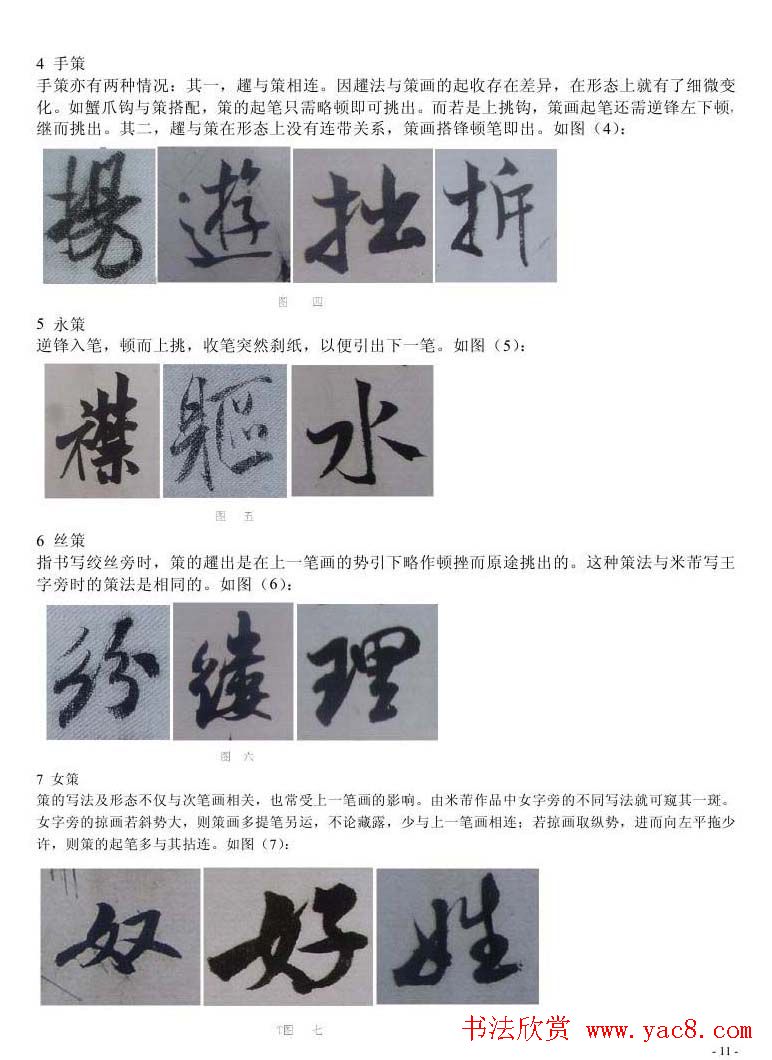 4 手策
手策亦有两种情况：其一，趯与策相连。因趯法与策画的起收存在差异，在形态上就有了细微变
化。如蟹爪钩与策搭配，策的起笔只需略顿即可挑出。而若是上挑钩，策画起笔还需逆锋左下顿，
继而挑出。其二，趯与策在形态上没有连带关系，策画搭锋顿笔即出。如图（4）：
揚 遊 拙 拆
图 四
5 永策
逆锋入笔，顿而上挑，收笔突然刹纸，以便引出下一笔。如图（5）：
襟 軀 水
图 五
6 丝策
指书写绞丝旁时，策的趯出是在上一笔画的势引下略作顿挫而原途挑出的。这种策法与米芾写王
字旁时的策法是相同的。如图（6）：
纷 缕 理
图 六
7 女策
策的写法及形态不仅与次笔画相关，也常受上一笔画的影响。由米芾作品中女字旁的不同写法就可窥其一斑。
女字旁的掠画若斜势大，则策画多提笔另运，不论藏露，少与上一笔画相连；若掠画取纵势，进而向左平拖少
许，则策的起笔多与其拈连。如图（7）：
奴 好 姓
T图 七
书法欣赏 www.yac8.com
- 11 -